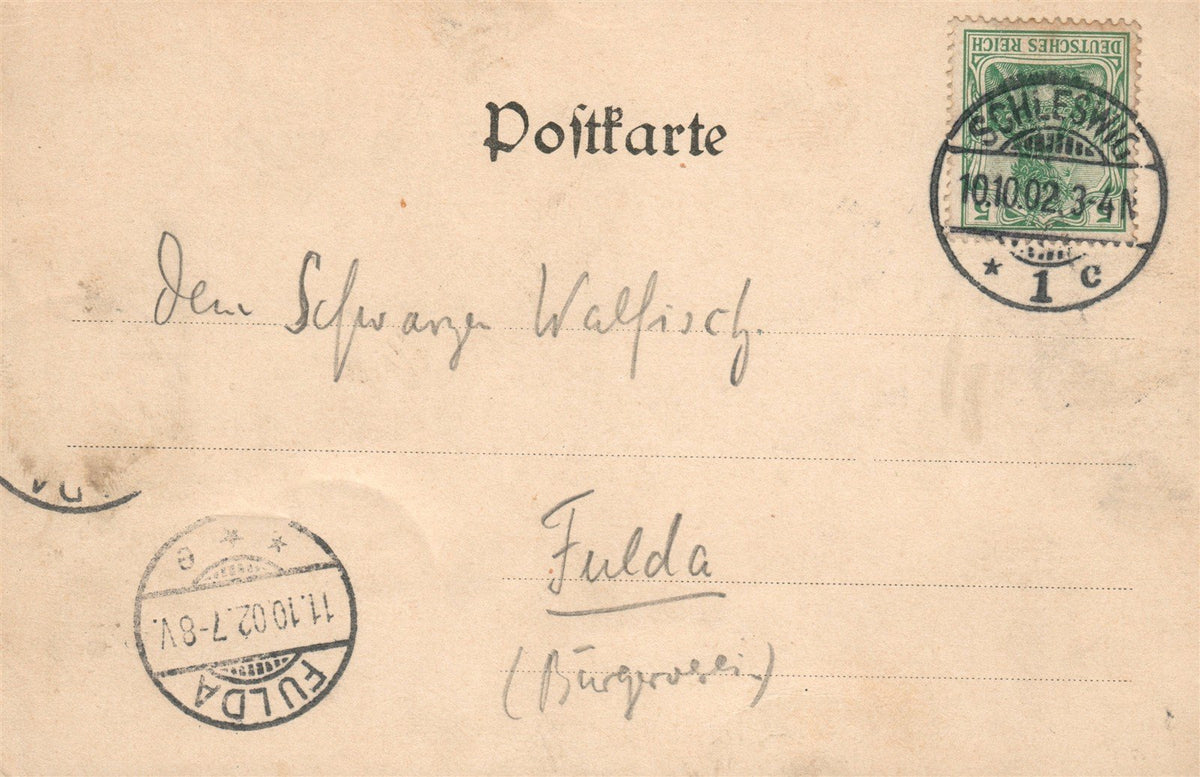 DEUTSCHES REICH
5 5
Postkarte
SCHLESWIG
10.10.02. 3-4 N
* 1 c
Dem Schwarzen Walfisch.
Fulda
(Bürgerverein)
* * e
11.10.02. 7-8 V.
FULDA
DA